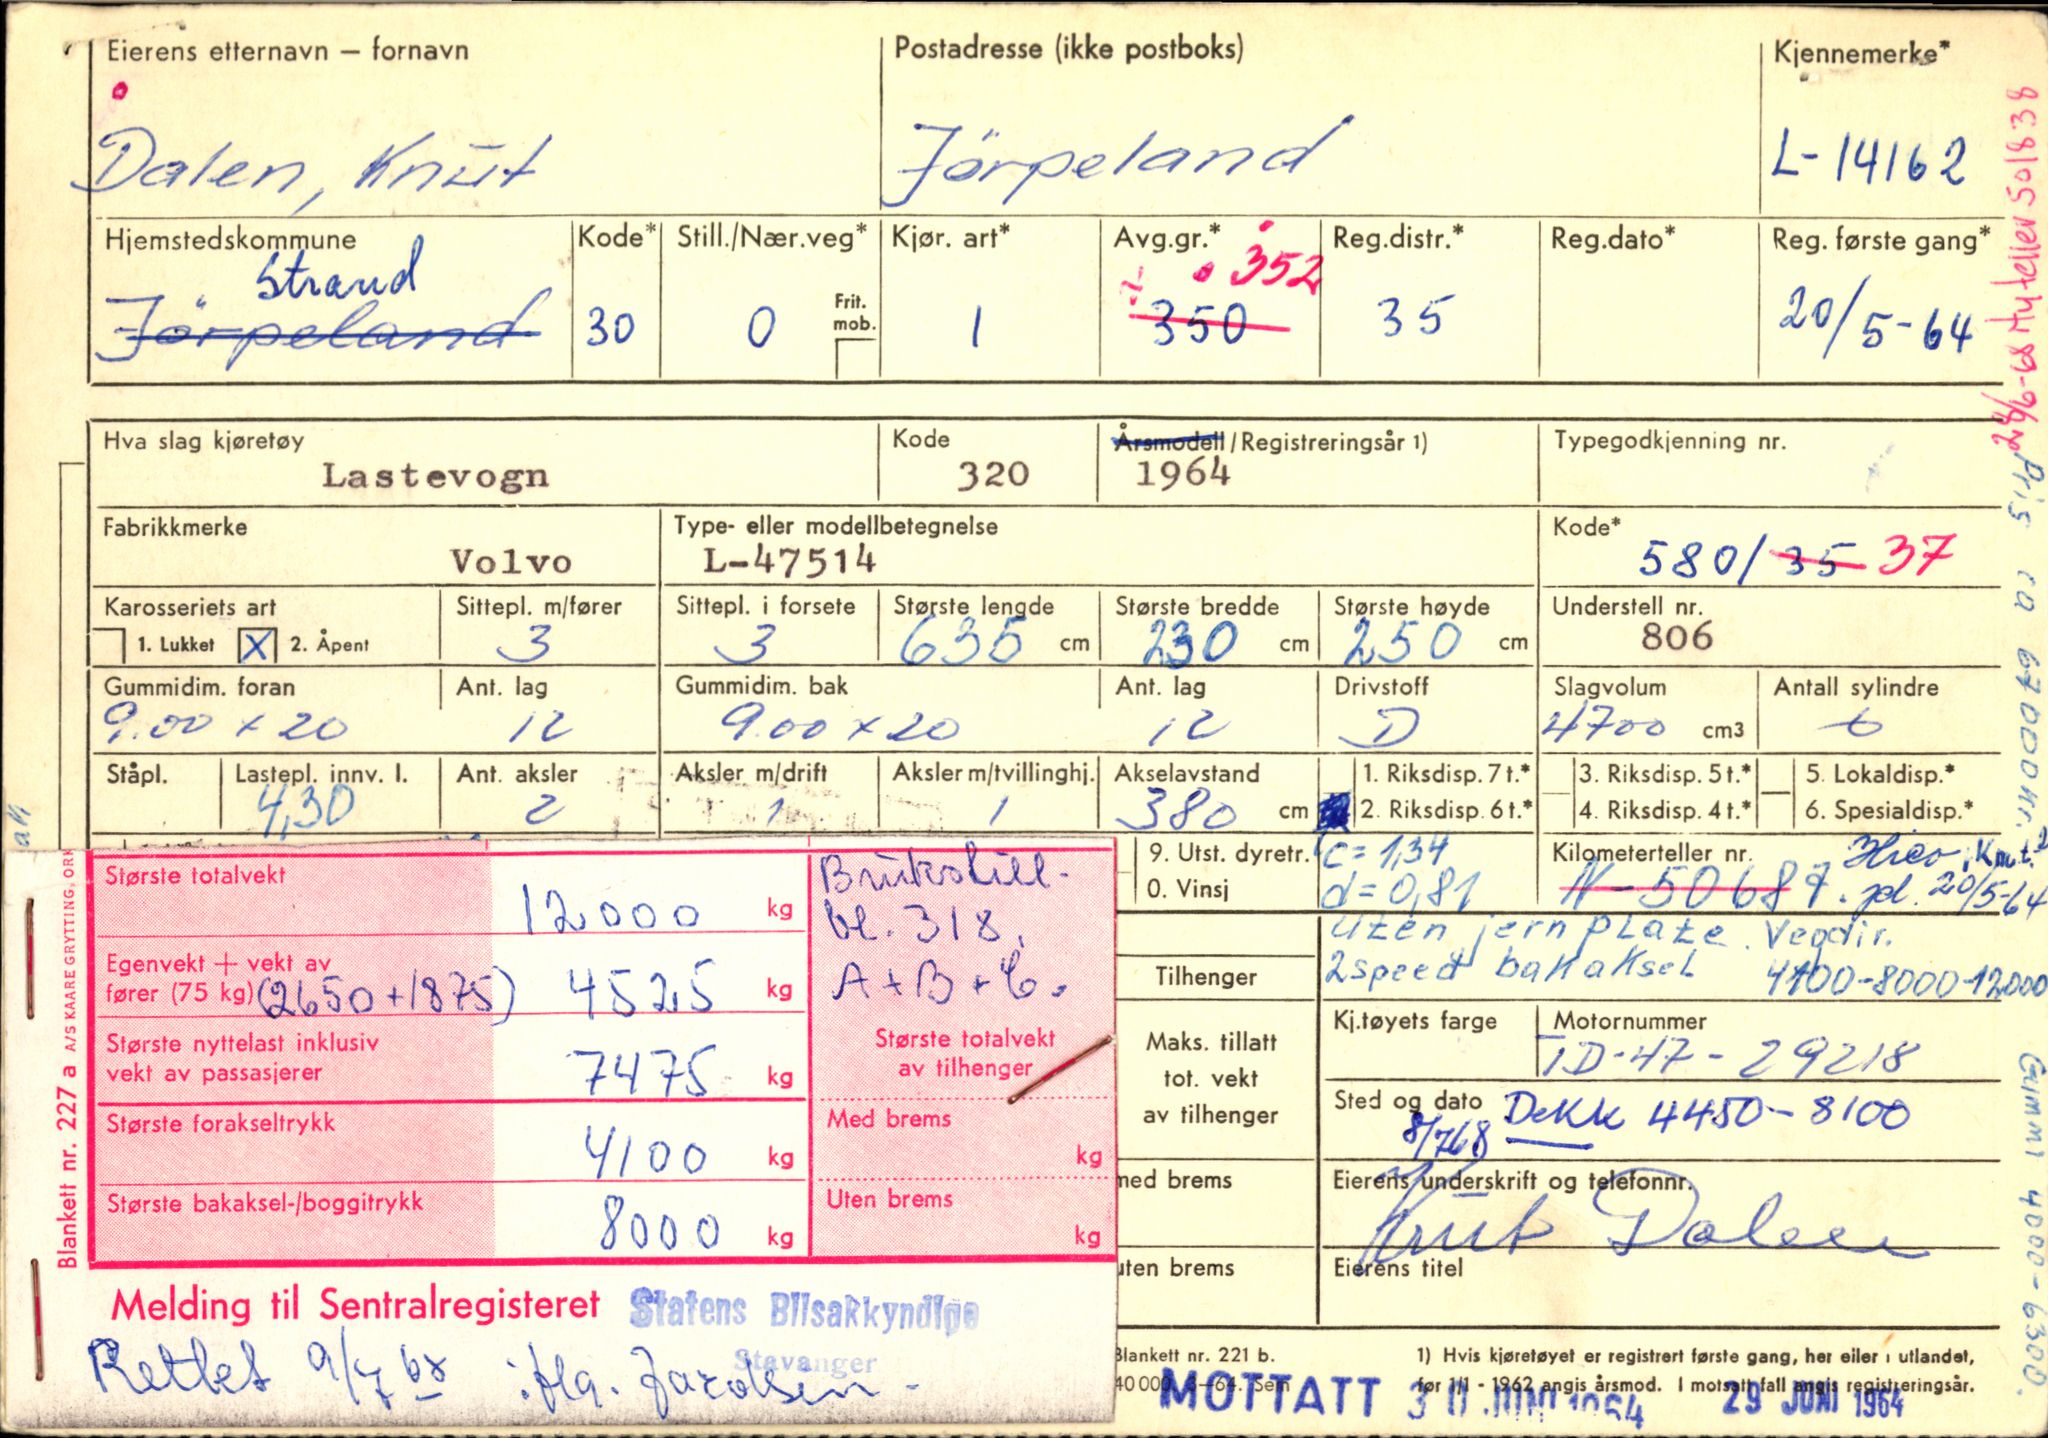 Eierens etternavn — fornavn
Postadresse (ikke postboks)
Kjennemerke*
Dalen, Knut
Jörpeland
L-14162
Hjemstedskommune
Kode*
Still./Nær.veg*
Kjør. art*
Avg.gr.*
Reg.distr.*
Reg.dato*
Reg. første gang*
Strand
352
Jörpeland
30
0
Frit. mob.
1
350
35
20/5-64
Hva slag kjøretøy
Kode
Årsmodell / Registreringsår 1)
Typegodkjenning nr.
Lastevogn
320
1964
Fabrikkmerke
Type- eller modellbetegnelse
Kode*
Volvo
L-47514
580/ 35 37
Karosseriets art
Sittepl. m/fører
Sittepl. i forsete
Største lengde
Største bredde
Største høyde
Understell nr.
1. Lukket X 2. Åpent
3
3
635 cm
230 cm
250 cm
806
Gummidim. foran
Ant. lag
Gummidim. bak
Ant. lag
Drivstoff
Slagvolum
Antall sylindre
9.00 x 20
12
9.00 x 20
12
D
4700 cm3
6
Ståpl.
Lastepl. innv. l.
Ant. aksler
Aksler m/drift
Aksler m/tvillinghj.
Akselavstand
1. Riksdisp. 7 t.*
3. Riksdisp. 5 t.*
5. Lokaldisp.*
4,30
2
1
1
380 cm
2. Riksdisp. 6 t.*
4. Riksdisp. 4 t.*
6. Spesialdisp.*
9. Utst. dyretr.
0. Vinsj
c = 1,34
d = 0,81
Kilometerteller nr.
N-50687.
20/5-64
Uten jernplate. Vegdir.
2speed bakaksel 4100-8000-12000
Største totalvekt
12000 kg
Brukstill-
bl. 318,
A + B + C.
Egenvekt + vekt av
fører (75 kg) (2650+1875) 4525 kg
Største nyttelast inklusiv
vekt av passasjerer
7475 kg
Største totalvekt
av tilhenger
Største forakseltrykk
4100 kg
Med brems
kg
Største bakaksel-/boggitrykk
8000 kg
Uten brems
kg
Blankett nr. 227 a A/S KAARE GRYTTING, ORK
Melding til Sentralregisteret
Statens Bilsakkyndige
Stavanger
Rettet 9/7 68
Tilhenger
Maks. tillatt
tot. vekt
av tilhenger
med brems
uten brems
Kj.tøyets farge
Motornummer
TD-47-29218
Sted og dato
Dekk 4450-8100
8/7 68
Eierens underskrift og telefonnr.
Knut Dalen
Eierens titel
Blankett nr. 221 b.
40 000. 3-64. Sem
1) Hvis kjøretøyet er registrert første gang, her eller i utlandet,
før 1/1 - 1962 angis årsmod. I motsatt fall angis registreringsår.
MOTTATT 30 JUNI 1964
29 JUNI 1964
28/6-68 Myteller 501838
Pris ca 67000 kr.
Gummi 4000-6300.